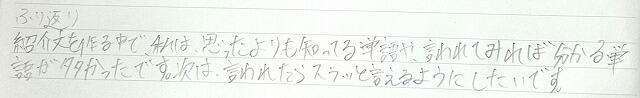 ふり返り
紹介文を作る中で、私は、思ったよりも知ってる単語や、言われてみれば分かる単
語が多かったです。次は、言われたらスラッと言えるようにしたいです